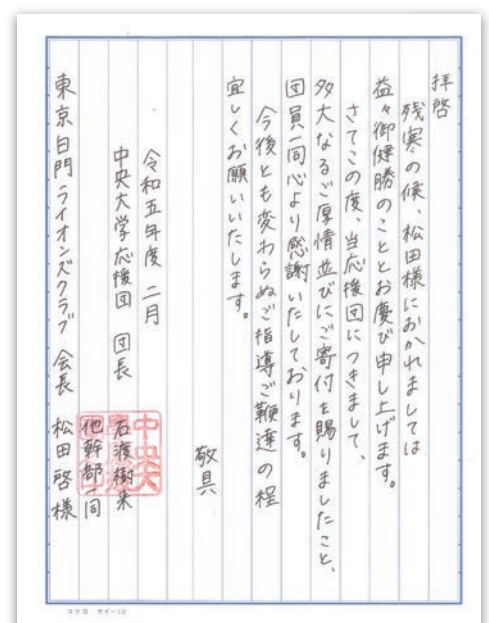 拝啓
残寒の候、松田様におかれましては
益々御健勝のこととお慶び申し上げます。
さてこの度、当応援団につきまして、
多大なるご厚情並びにご寄付を賜りましたこと、
団員一同心より感謝いたしております。
今後とも変わらぬご指導ご鞭達の程
宜しくお願いいたします。
敬具
令和五年度 二月
中央大学応援団 団長 石渡樹来
他幹部一同
東京白門ライオンズクラブ 会長 松田啓様
コクヨ ケイ-10